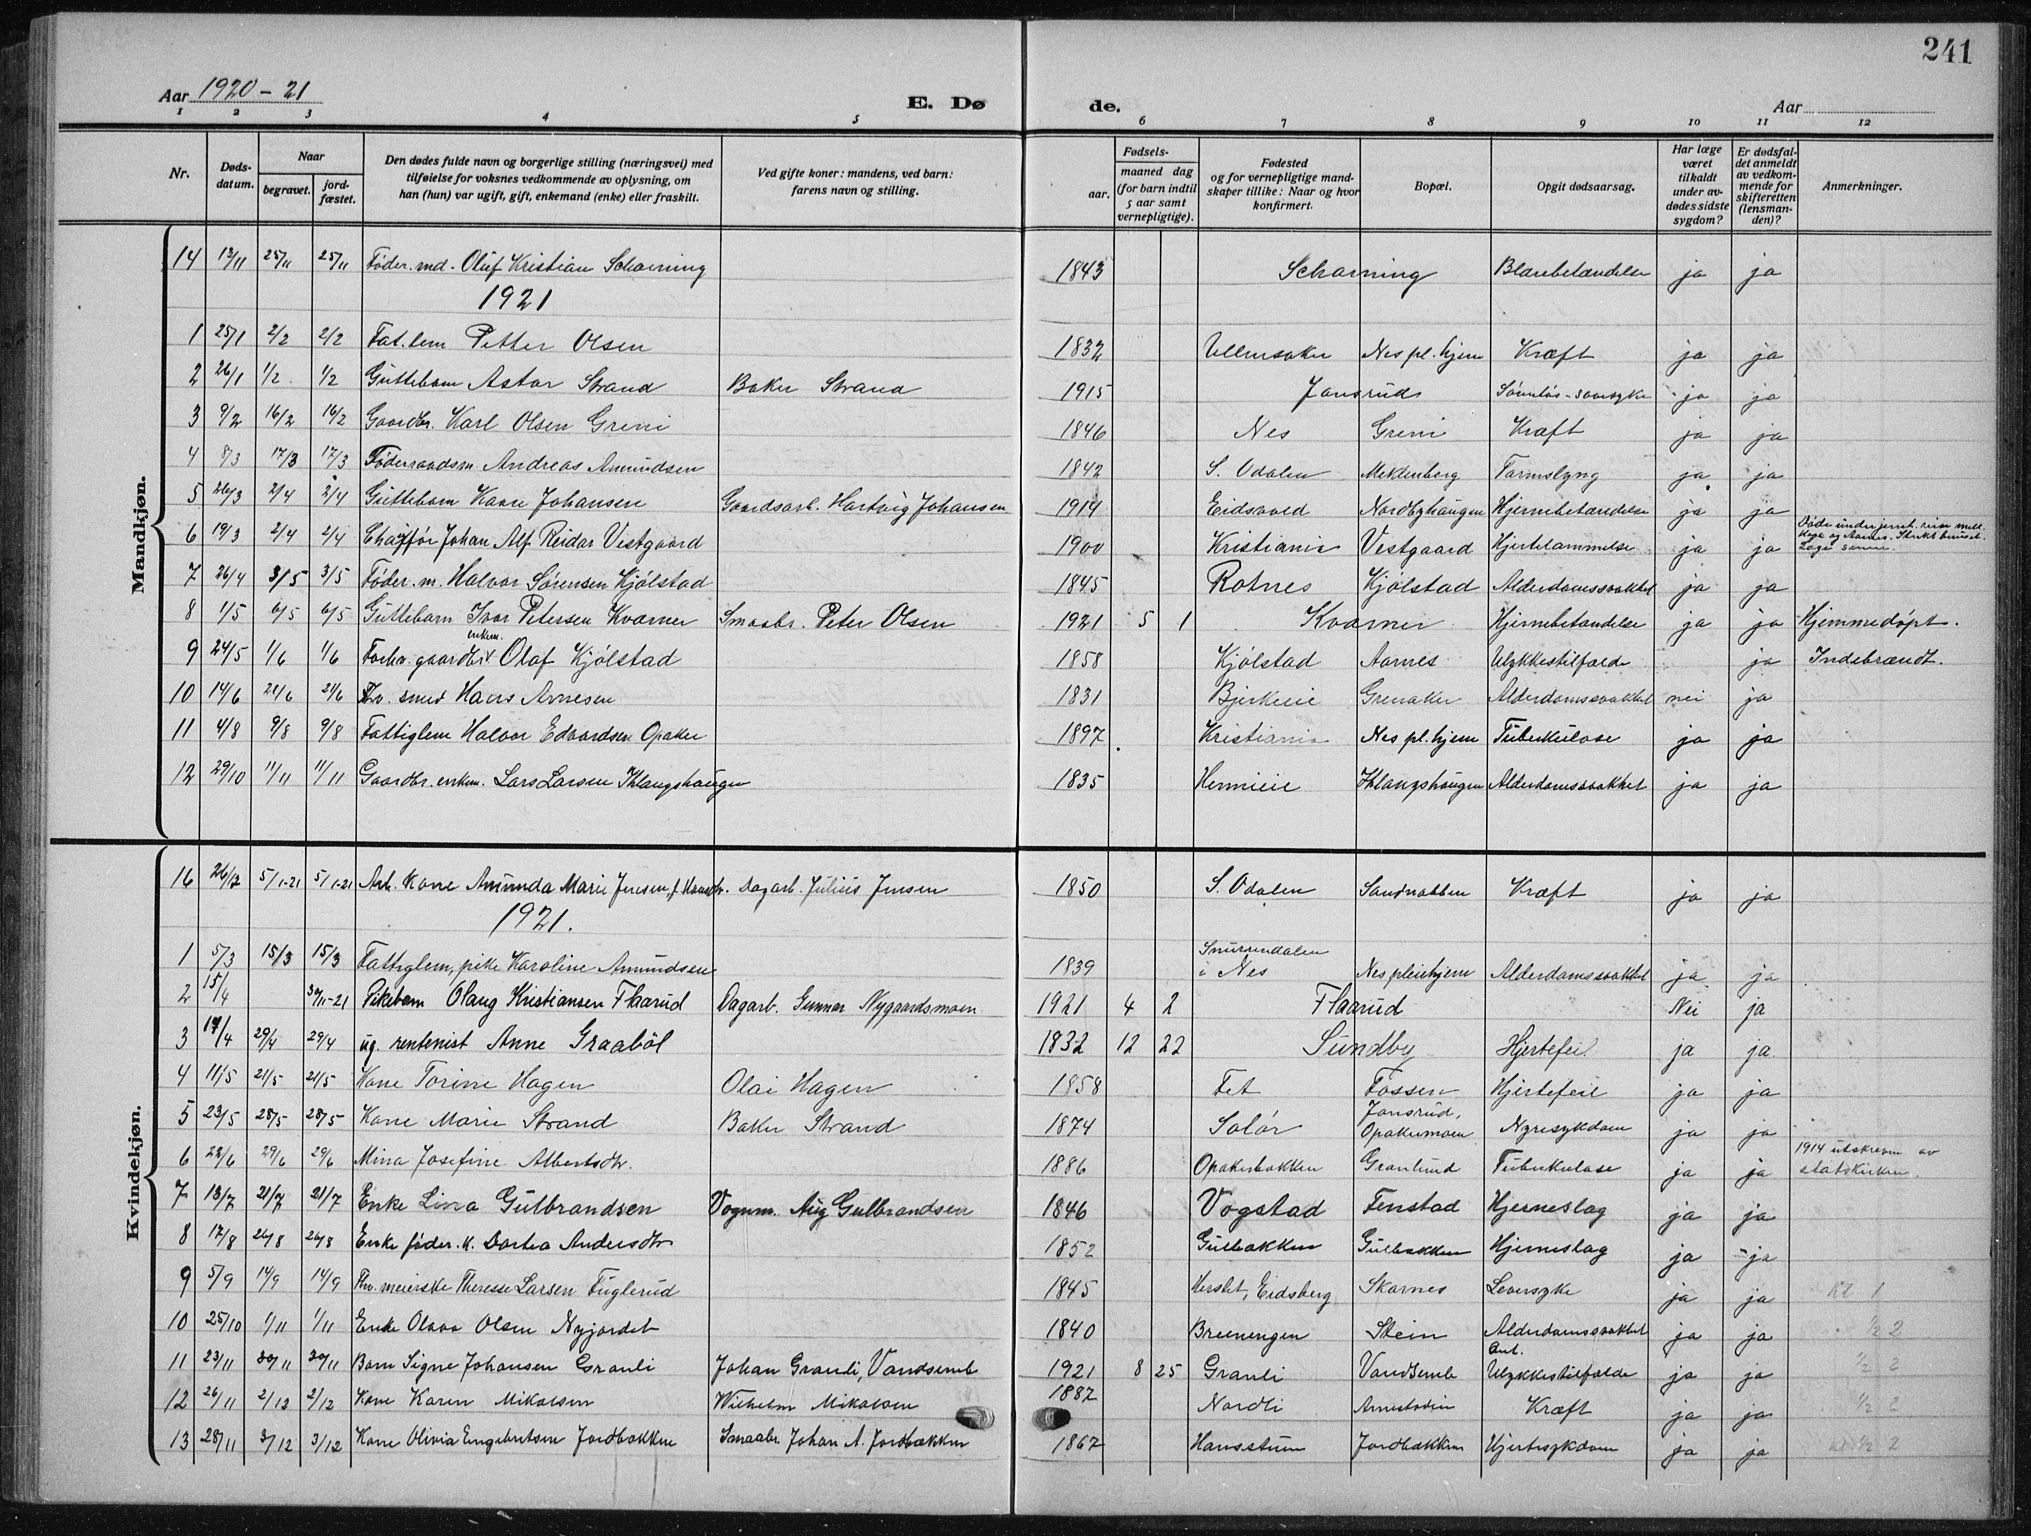 241
Aar 1920-21
E. Dø de.
Aar
1 2 3 4 5 6 7 8 9 10 11 12
Nr.
Døds-
datum.
Naar
begravet.
jord-
fæstet.
Den dødes fulde navn og borgerlige stilling (næringsvei) med
tilføielse for voksnes vedkommende av oplysning, om
han (hun) var ugift, gift, enkemand (enke) eller fraskilt.
Ved gifte koner: mandens, ved barn:
farens navn og stilling.
Fødsels-
aar.
maaned dag
(for barn indtil
5 aar samt
vernepligtige).
Fødested
og for vernepligtige mand-
skaper tillike: Naar og hvor
konfirmert.
Bopæl.
Opgit dødsaarsag.
Har læge
været
tilkaldt
under av-
dødes sidste
sygdom?
Er dødsfal-
det anmeldt
av vedkom-
mende for
skifteretten
(lensman-
den)?
Anmerkninger.
Mandkjøn.
14 13/11 25/11 25/11 Føder.md. Oluf Kristian Scharning 1843 Scharning Blærebetændelse ja ja
1921
1 25/1 2/2 2/2 Fat.lem Petter Olsen 1832 Ullensaker Nes pl.hjem Kræft ja ja
2 26/1 1/2 1/2 Guttebarn Astor Strand Baker Strand 1915 Jansrud Sømløs-sovesyke ja ja
3 9/2 16/2 16/2 Gaardbr. Karl Olsen Greni 1846 Nes Greni Kræft ja ja
4 8/3 17/3 17/3 Føderaadsm. Andreas Amundsen 1842 S. Odalen Meklenborg Tarmslyng ja ja
5 26/3 2/4 2/4 Guttebarn Kaare Johansen Gaardsarb. Hartvig Johansen 1914 Eidsvold Nordbyhaugen Hjernebetændelse ja ja
6 19/3 2/4 2/4 Chaffør Johan Alf Reidar Vestgaard 1900 Kristiania Vestgaard Hjertelammelse ja ja Døde under jernb. reise mell.
7 26/4 3/5 3/5 Føder.m. Halvor Sørensen Kjølstad 1845 Rotnes Kjølstad Alderdomssvakhet ja ja
8 1/5 6/5 6/5 Guttebarn Ivar Petersen Kvarner Smaabr. Peter Olsen 1921 5 1 Kvarner Hjernebetændelse ja ja Hjemmedøpt.
enkem.
9 24/5 1/6 1/6 Forhv. gaardbr. Olaf Kjølstad 1858 Kjølstad Aarnes Ulykkestilfælde ja Indebrændt.
10 14/6 21/6 21/6 Fv. smed Hans Arnesen 1831 Bjerkeie Grenaker Alderdomssvakhet nei ja
11 4/8 9/8 9/8 Fattiglem Halvor Edvardsen Opaker 1897 Kristiania Nes pl.hjem Tuberkulose ja ja
12 29/10 11/11 11/11 Gaardbr. enkem. Lars Larsen Ihlangshaugen 1835 Hennieie Ihlangshaugen Alderdomssvakhet ja ja
Kvindekjøn.
16 26/12 5/1-21 5/1-21 Arb. kone Amunda Marie Jensen, f. Hansdtr. Dagarb. Julius Jensen 1850 S. Odalen Sandnabben Kræft ja ja
1921.
1 5/3 15/3 15/3 Fattiglem, pike Karoline Amundsen 1839 Snurrendalen i Nes Nes pleiehjem Alderdomssvakhet ja ja
2 15/4 30/11-21 Pikebarn Olaug Kristiansen Flaarud Dagarb. Gunnar Nygaardsmoen 1921 4 2 Flaarud Nei ja
3 17/4 29/4 29/4 ug. rentenist Anne Graabøl 1832 12 22 Sundby Hjertefeil ja ja
4 11/5 21/5 21/5 Kone Torine Hagen Olai Hagen 1858 Fet Fossen Hjertefeil ja ja
5 23/5 28/5 28/5 Kone Marie Strand Baker Strand 1874 Solør Jansrud, Opakermoen Nyresykdom ja ja
6 23/6 29/6 29/6 Mina Josefine Albertsdtr. 1886 Opakerbakken Granlund Tuberkulose ja ja 1914 utskreven av statskirken.
7 13/7 21/7 21/7 Enke Livia Gulbrandsen Vognm. Aug Gulbrandsen 1846 Vogstad Fenstad Hjerneslag ja ja
8 17/8 26/8 26/8 Enke føder.k. Dortea Andersdtr 1852 Gulbakken Gulbakken Hjerneslag ja ja
9 5/9 14/9 14/9 Fhv. meierske Therese Larsen Fuglerud 1845 Herslet, Eidsberg Skarnes Leversyke ja ja kl 1
10 25/10 1/11 1/11 Enke Olava Olsen Nyjordet 1840 Breeningen Stein Alderdomssvakhet ja ja ½ 2
11 23/11 30/11 30/11 Barn Signe Johansen Granli Johan Granli, Vandsemb 1921 8 25 Granli Vandsemb Ant. Ulykkestilfælde ja ja ½ 2
12 26/11 2/12 2/12 Kone Karen Mikalsen Wilhelm Mikalsen 1882 Nordli Arnestadeie Kræft ja ja ½ 2
13 28/11 3/12 3/12 Kone Olivia Engebretsen Jordbakken Smaabr. Johan A. Jordbakken 1867 Hansstuen Jordbakken Hjertesykdom ja ja kl ½ 2